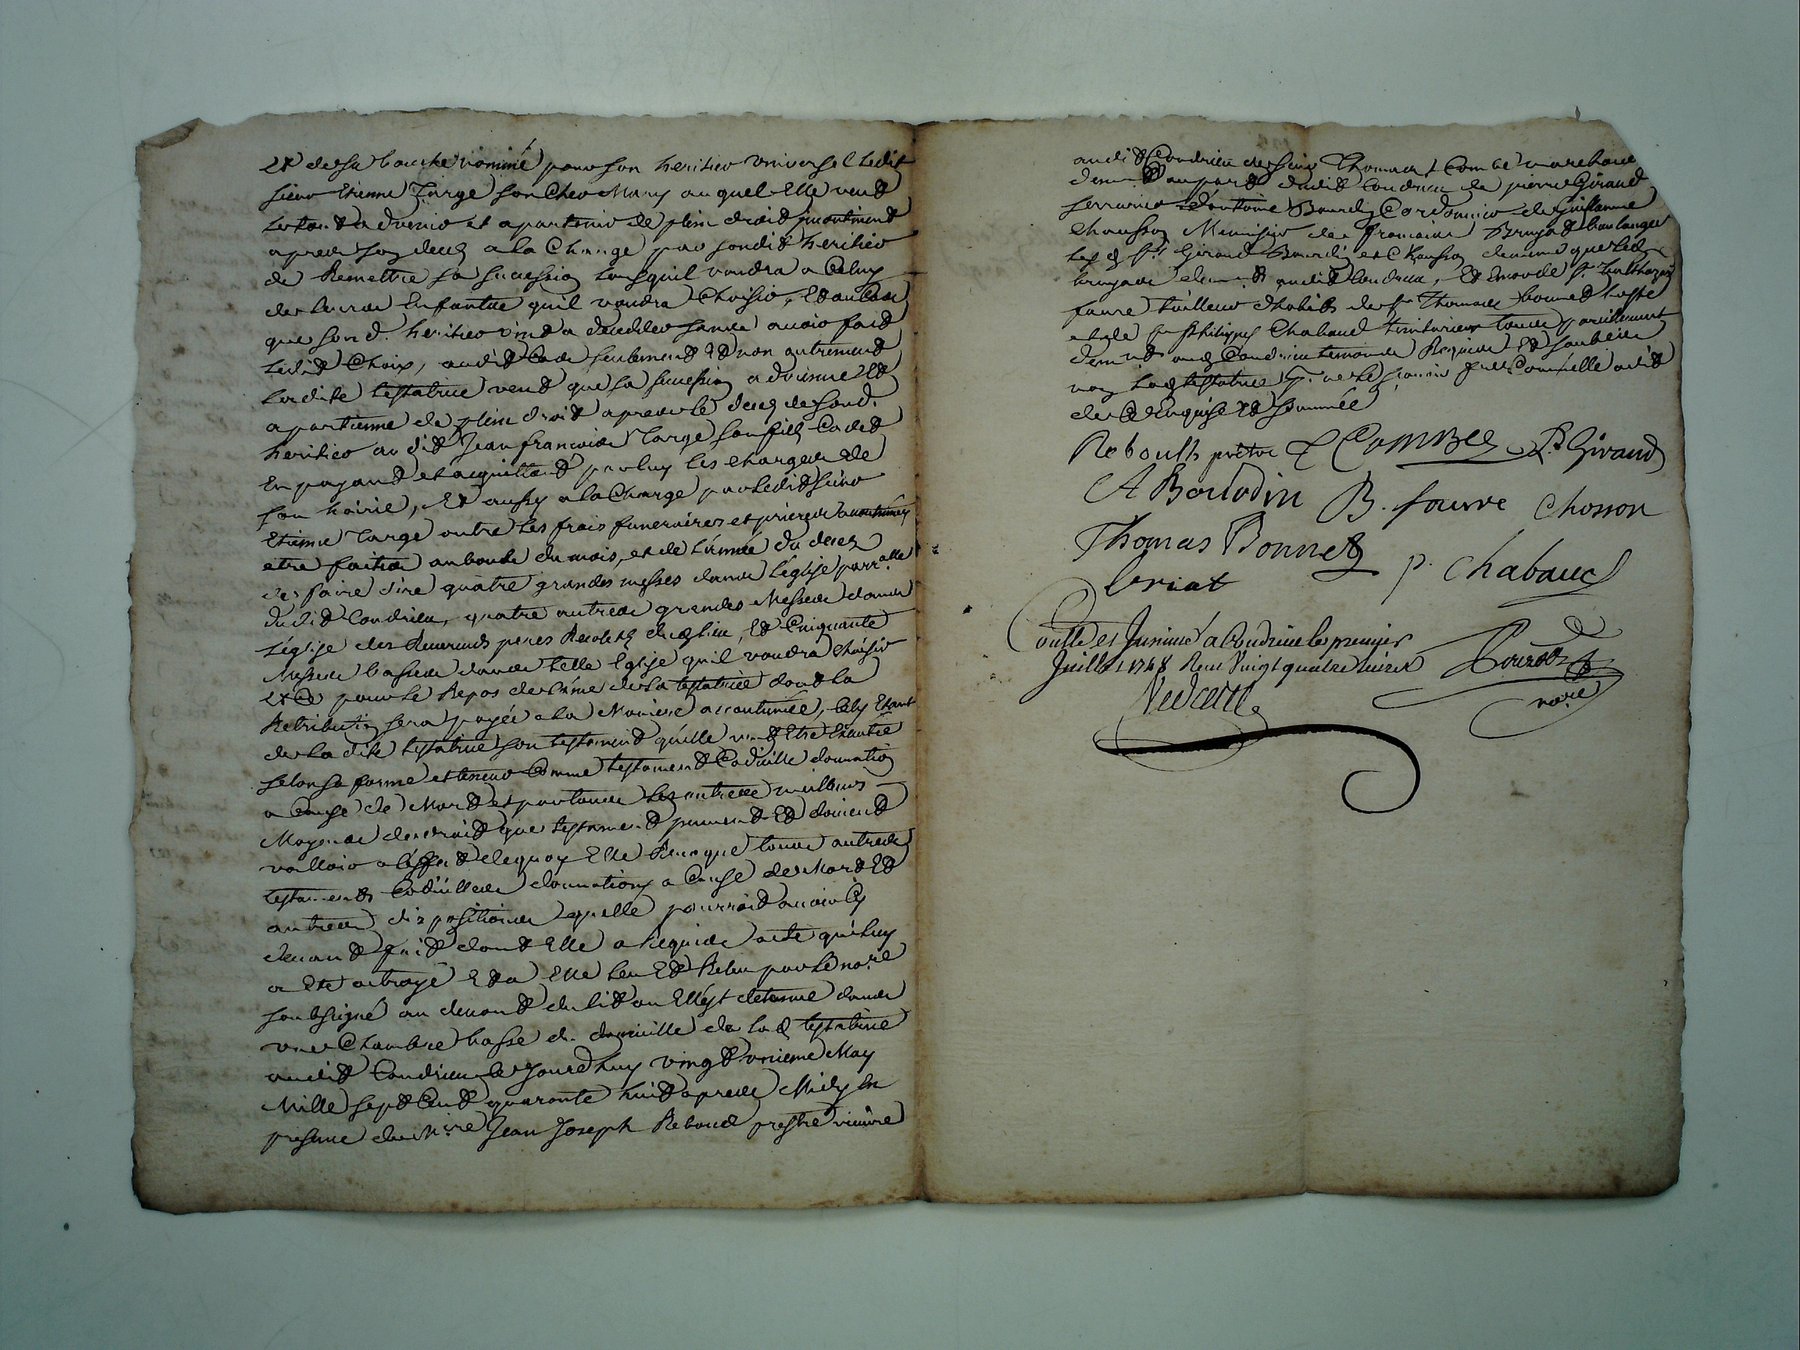 et de sa bouche nommé pour son heritier universel ledit
sieur Etienne Farge son cher Mary auquel Elle veut
le tout advenir et apartenir de plein droit incontinent
apres son decez a la Charge par sondit heritier
de Remettre sa sucession lorsquil voudra a Celuy
de leurs Enfants quil voudra Choisir, Et au Cas
que sond. heritier vint a deceder sans avoir fait
ledit Choix, audit Cas seulement Et non autrement
ladite testatrice veut que sa sucession advienne Et
apartienne de plein droit apres le decez de sond.
heritier audit Jean francois Farge son fils Cadet
En payant et acquittant par luy les charges de
son hoirie, Et aussy a la Charge par ledit sieur
Etienne Farge outre les frais funeraires et prieres accoutumées
etre faites au bout du mois, et de l'année du decez
de faire dire quatre grandes messes dans l'église parr.alle
dudit Condrieu, quatre autres grandes Messes dans
l'église des Reverends peres Recolets dud. lieu, Et Cinquante
Messes basses dans telle Eglise quil voudra choisir
et Ce pour le Repos de l'ame de la testatrice dont la
Retribution sera payée a la Maniere accoutumée, Cecy Etant
de la dite testatrice son testament qu'elle veut Etre Executé
selon sa forme et teneur Comme testament Codicille donation
a Cause de Mort et par toutes les autres meilleurs
Moyens de droit que testament peuvent Et doivent
valloir a l'effet dequoy Elle Revoque tous autres
testaments Codicilles donations a Cause de Mort Et
autres dispositions quelle pourroit avoir Cy
devant fait dont Elle a Requis acte qui luy
a Eté octroyé Et a Elle leu Et Releu par le no.re
soubsigné au devant du lit ou Elle est detenue dans
une Chambre basse du domicille de lad. testatrice
audit Condrieu Ce Jourdhuy vingt unieme May
Mille sept Cent quarante huit apres Midy En
presence de M.re Jean Joseph Reboul prestre vicaire
audit Condrieu de sieur Thomas Combe marchand
dem.t au port dudit Condrieu de pierre Giraud
serrurier d'antoine Bourdin Cordonnier de Guillaume
Chausson Menuisier de francois Bruyas boulanger
Led. s.rs Giraud Bourdin et Chausson
Bruyas dem.t audit Condrieu, Et encore de s.r Balthazard
faure tailleur d'habits de s.r Thomas Bonnet hoste
et de s.r philippes Chabaud teinturier tous pareillement
dem.t aud. Condrieu temoins Requis Et soubsignés
non lad. testatrice p. ne le scavoir
de Ce Enquise Et sommée
Reboulh prêtre T Combe P. Giraud
A Bourdin B. faure Chosson
Thomas Bonnet p. Chabaud
Briat
Conllé et Insinué a Condrieu le premier
Juillet 1748 Receu Vingt quatre livres
no.re